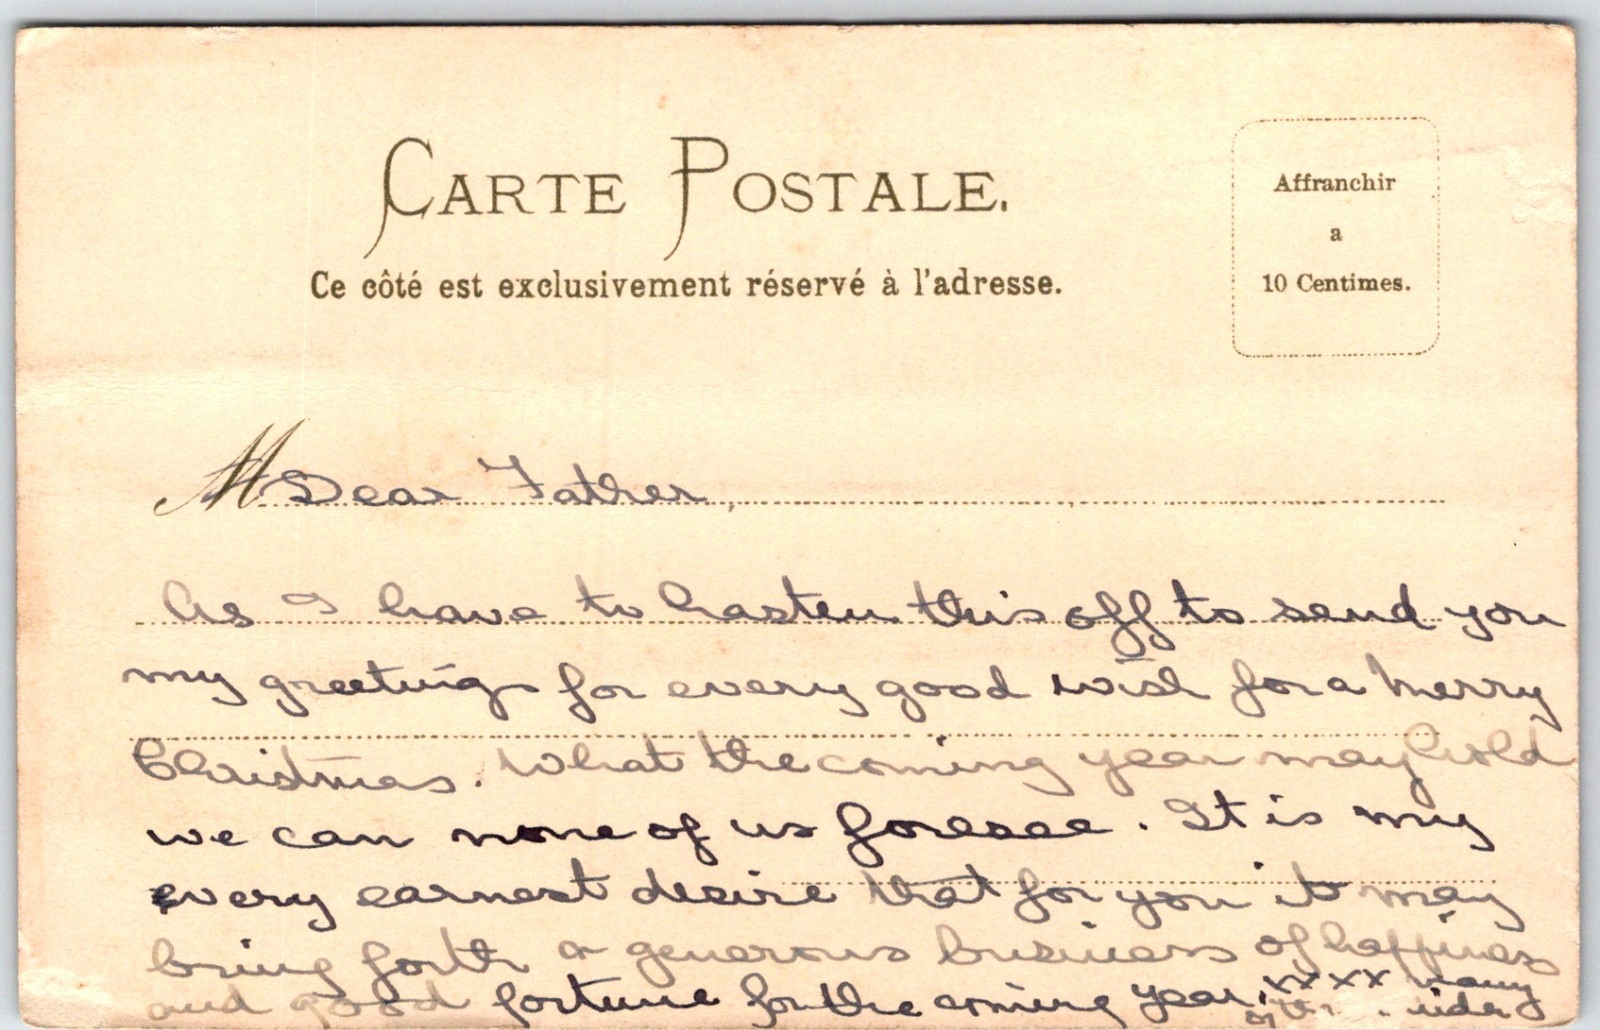 CARTE POSTALE.
Ce côté est exclusivement réservé à l'adresse.
Affranchir
a
10 Centimes.
M Dear Father,
As I have to hasten this off to send you
my greetings for every good wish for a merry
Christmas. What the coming year may hold
we can none of us foresee. It is my
every earnest desire that for you it may
bring forth a generous business of happiness
and good fortune for the coming year. xxxx many
on